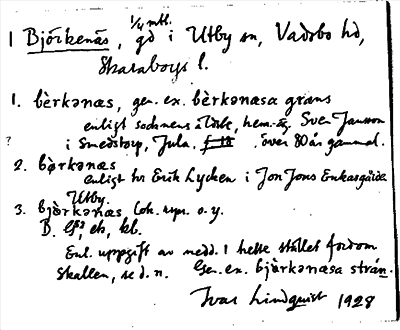 1/4 mtl.
1 Björkenäs, gd i Utby sn, Vadsbo hd,
Skaraborgs l.
1. bèrkənæs, gen. ex. bèrkənæsa gräns
enligt socknens äldste, hem.-äg. Sven Jansson
i Smedstorp, Jula. över 80 år gammal.
? 2. bǿrkənæs
enligt hr Erik Lycken i Jon Jons
Utby.
3. bjǿrkənæs, o. y.
B.
Enl. uppgift av medd. 1 hette stället fordom
Skallen, se d. n. Gen. ex. bjǿrkənæsa strán.
Ivar Lindquist 1928